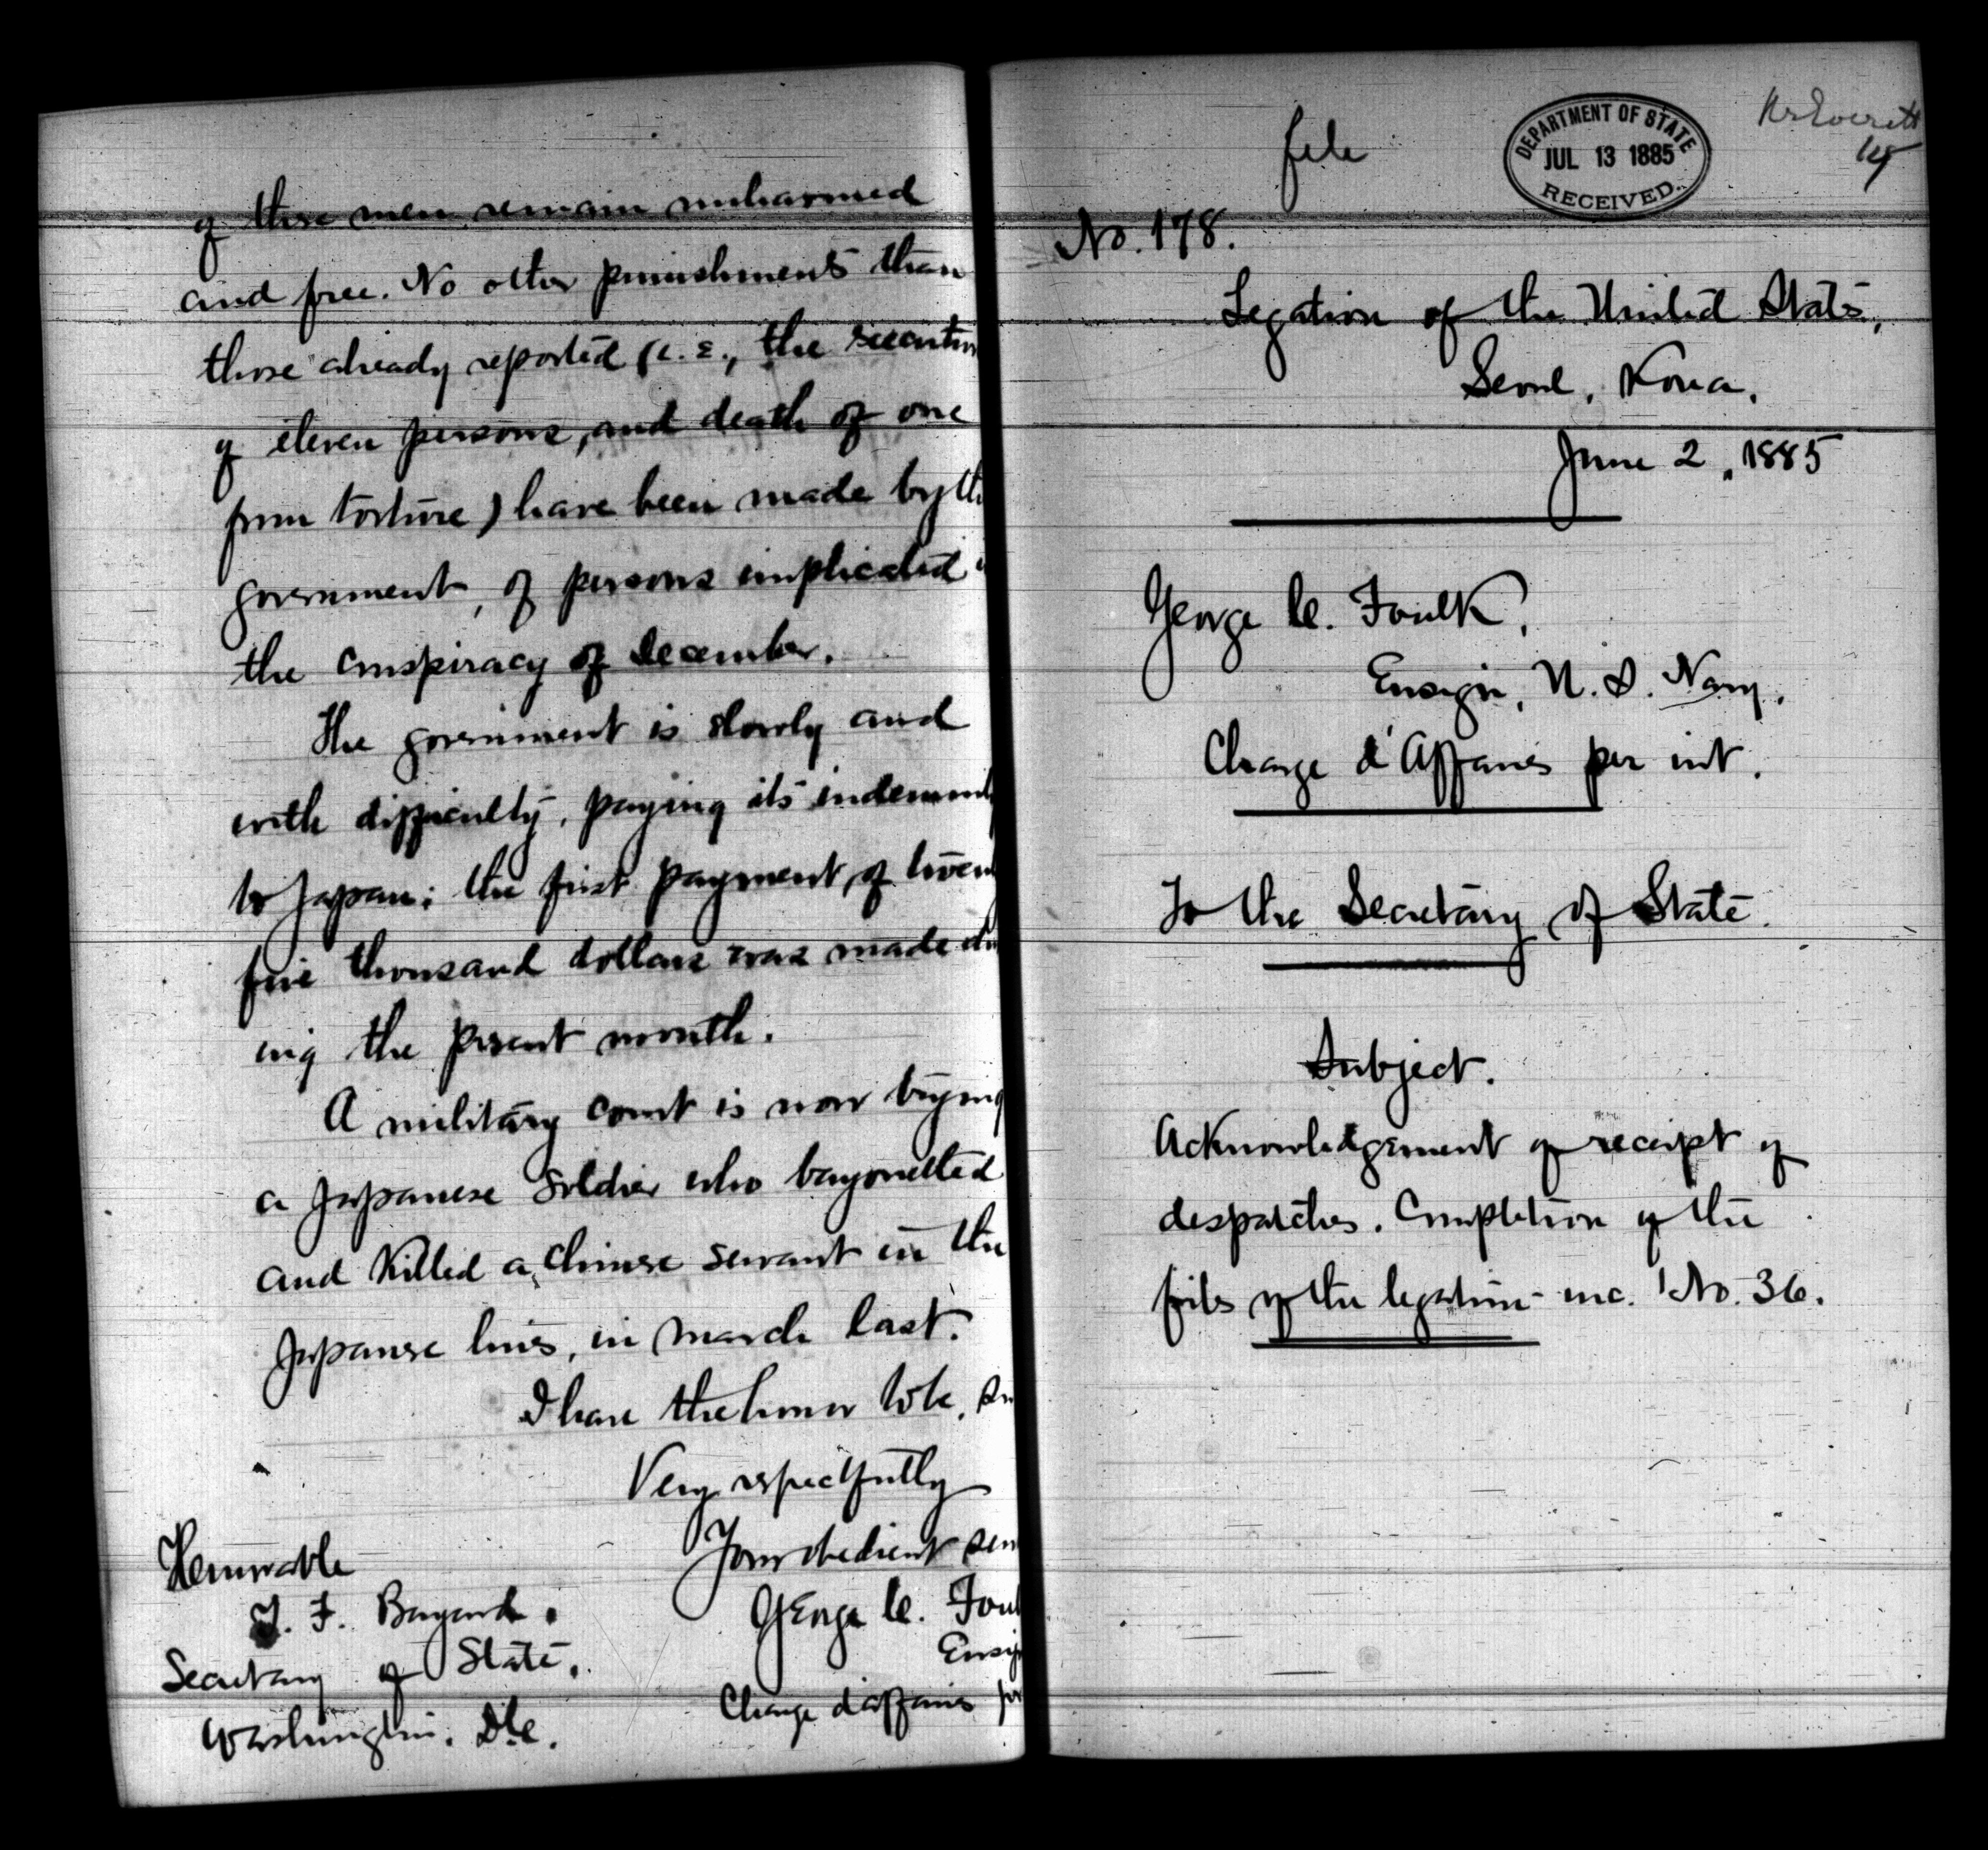 of these men remain unharmed
and free. No other punishments than
those already reported (i.e., the execution
of eleven persons, and death of one
from torture) have been made by th
government, of persons implicated i
the conspiracy of December.
The government is slowly and
with difficulty, paying its indemnit
to Japan; the first payment, of twen
five thousand dollars was made du
ing the present month.
A military court is now trying
a Japanese soldier who bayonetted
and killed a Chinese servant in the
Japanese lines, in March last.
I have the honor to be, Sir
Very respectfully
Your obedient ser
George C. Foul
Ensig
Charge d'affaires per
Honorable
T. F. Bayard.
Secretary of State,
Washington. D.C.
file
DEPARTMENT OF STATE
JUL 13 1885
RECEIVED.
Mr Everett
No. 178.
Legation of the United States,
Seoul, Korea,
June 2, 1885
George C. Foulk,
Ensign, U.S. Navy.
Charge d'Affaires per int.
To the Secretary of State.
Subject.
Acknowledgement of receipt of
despatches. Completion of the
files of the legation - inc. 1 No. 36.